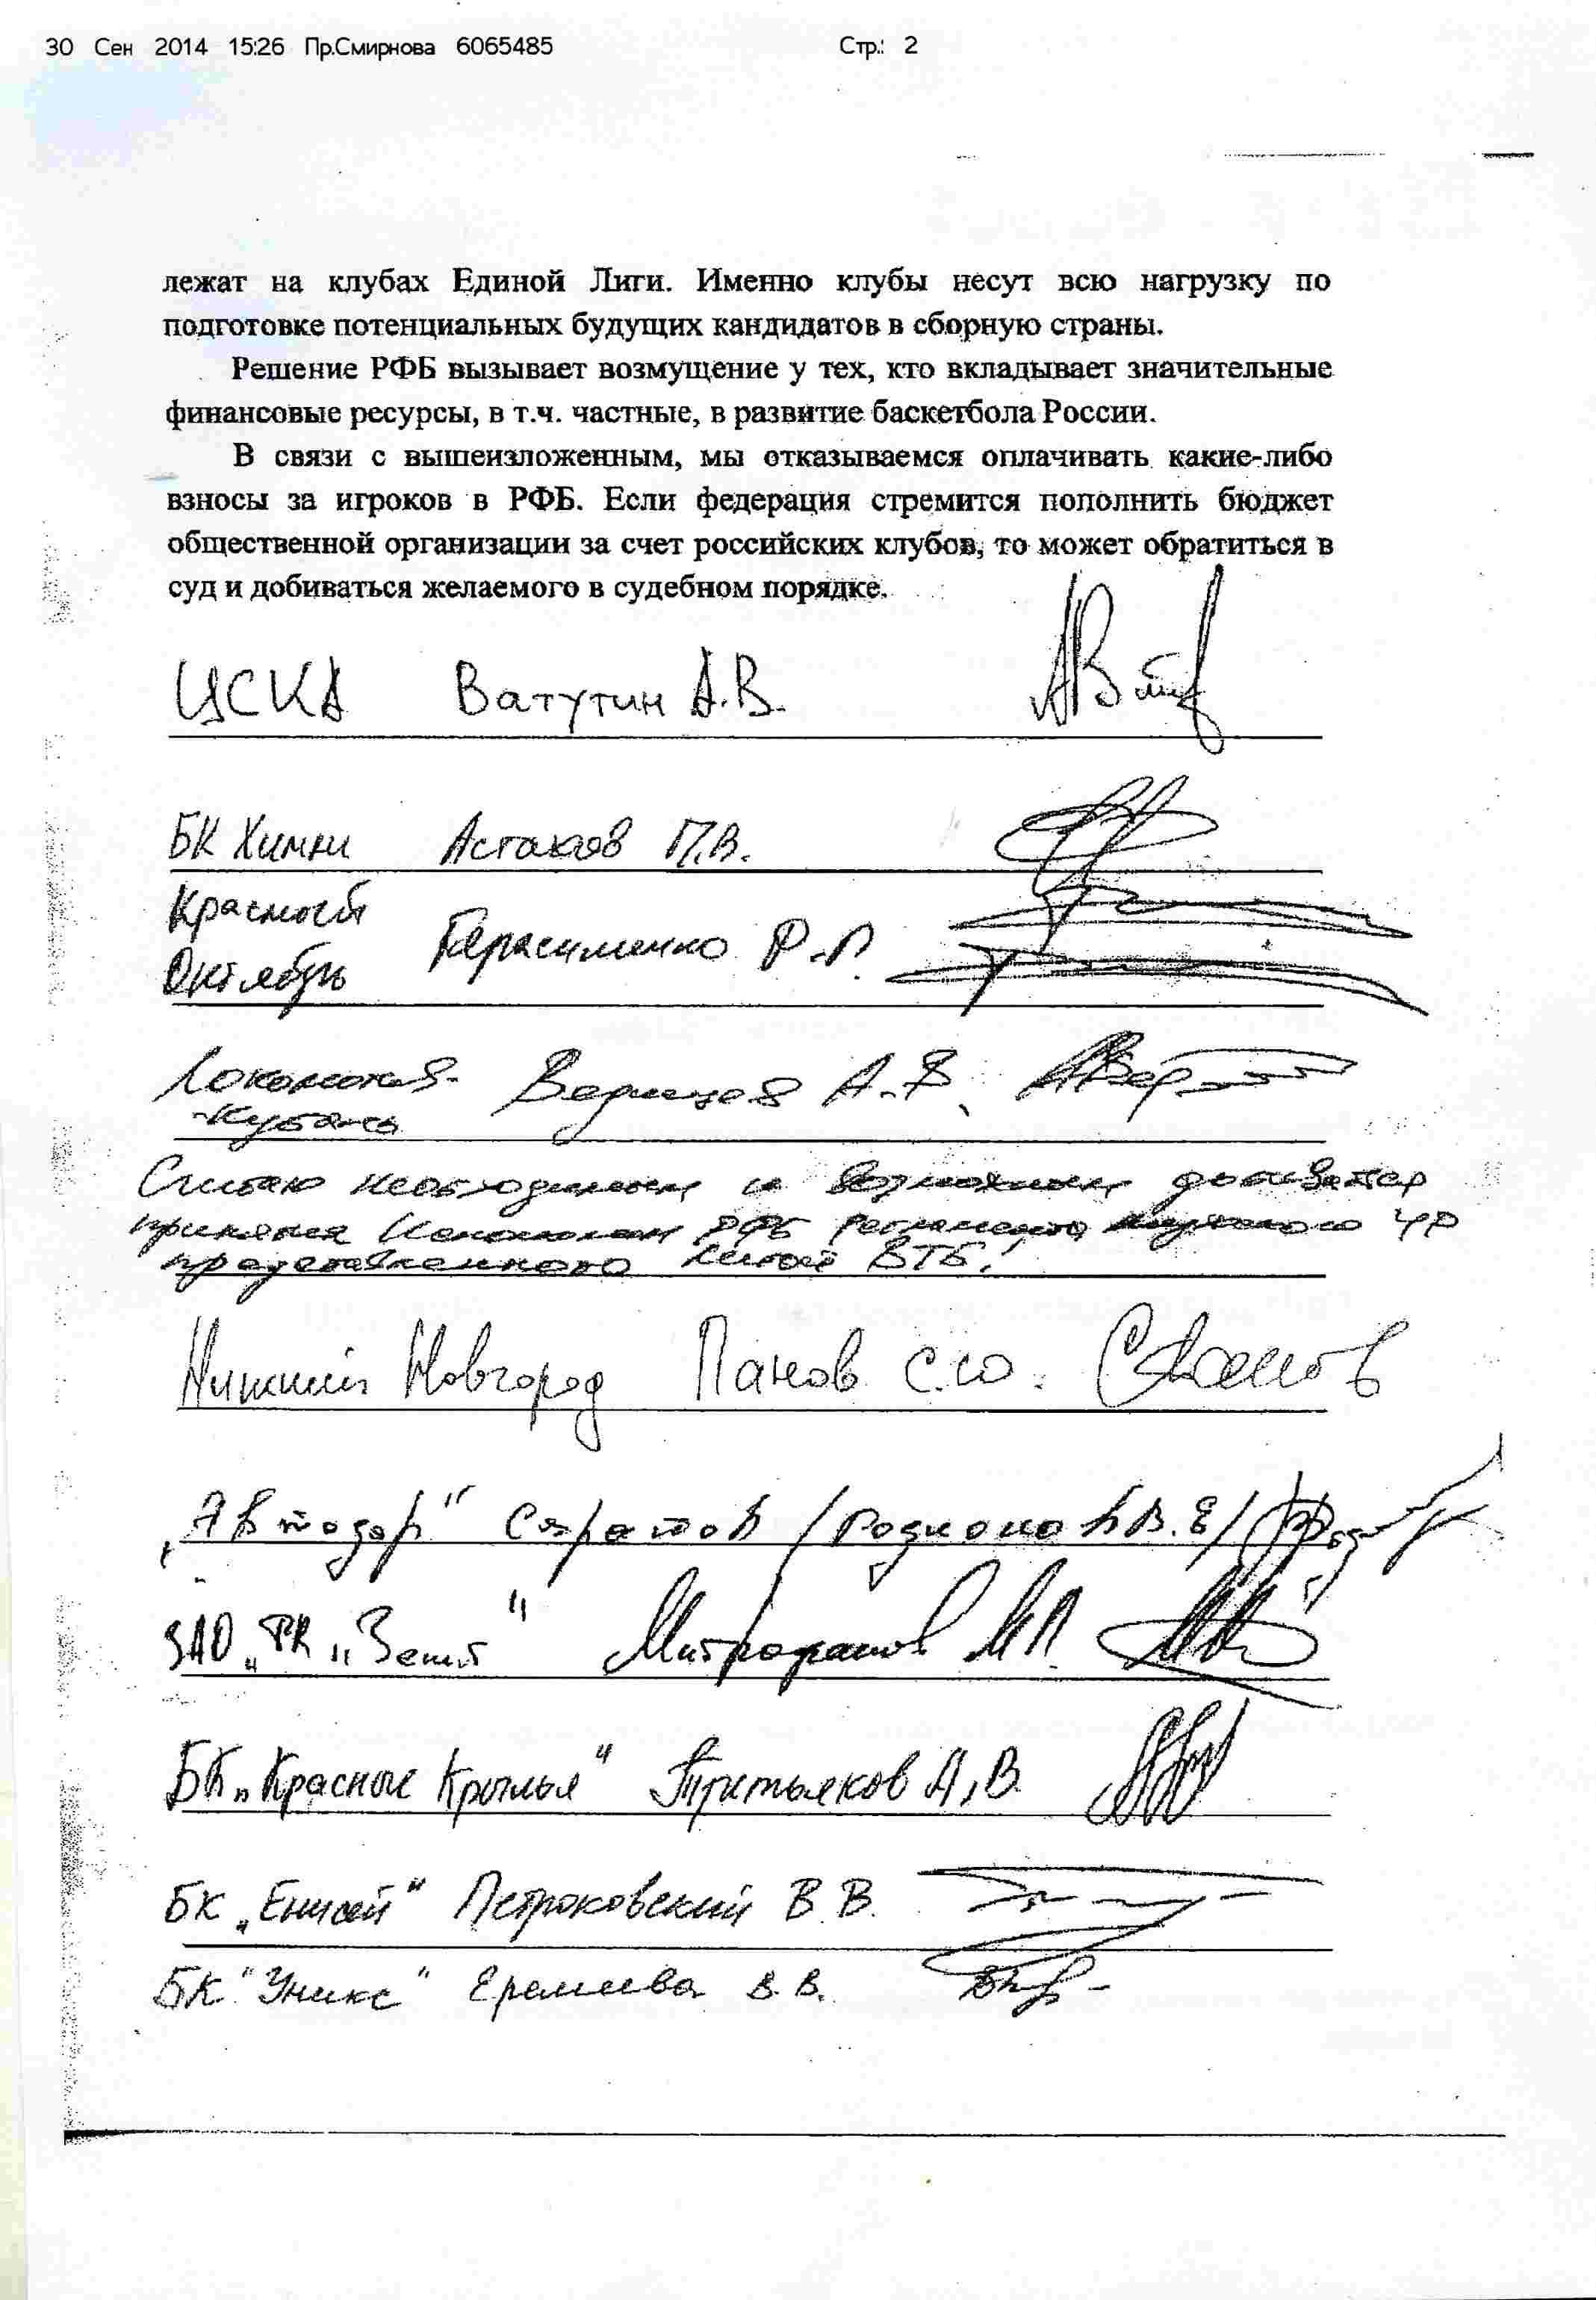 30 Сен 2014 15:26 Пр.Смирнова 6065485 Стр.: 2
лежат на клубах Единой Лиги. Именно клубы несут всю нагрузку по
подготовке потенциальных будущих кандидатов в сборную страны.
Решение РФБ вызывает возмущение у тех, кто вкладывает значительные
финансовые ресурсы, в т.ч. частные, в развитие баскетбола России.
В связи с вышеизложенным, мы отказываемся оплачивать какие-либо
взносы за игроков в РФБ. Если федерация стремится пополнить бюджет
общественной организации за счет российских клубов, то может обратиться в
суд и добиваться желаемого в судебном порядке.
ЦСКА Ватутин А.В.
БК Химки Астахов П.В.
Красный
Октябрь Герасименко Р.П.
Локомотив- Ведищев А.В.
-Кубань
Считаю необходимым и возможным добиваться
принятия Исполкомом РФБ Регламента мужского ЧР
представленного Лигой ВТБ!
Нижний Новгород Панов С.Ю.
„Автодор" Саратов /Родионов В.Е/
ЗАО „БК „Зенит" Митрофанов М.П.
БК „Красные Крылья" Притьяков А.В.
БК „Енисей" Петраковский В.В.
БК "Уникс" Еремеева В.В.